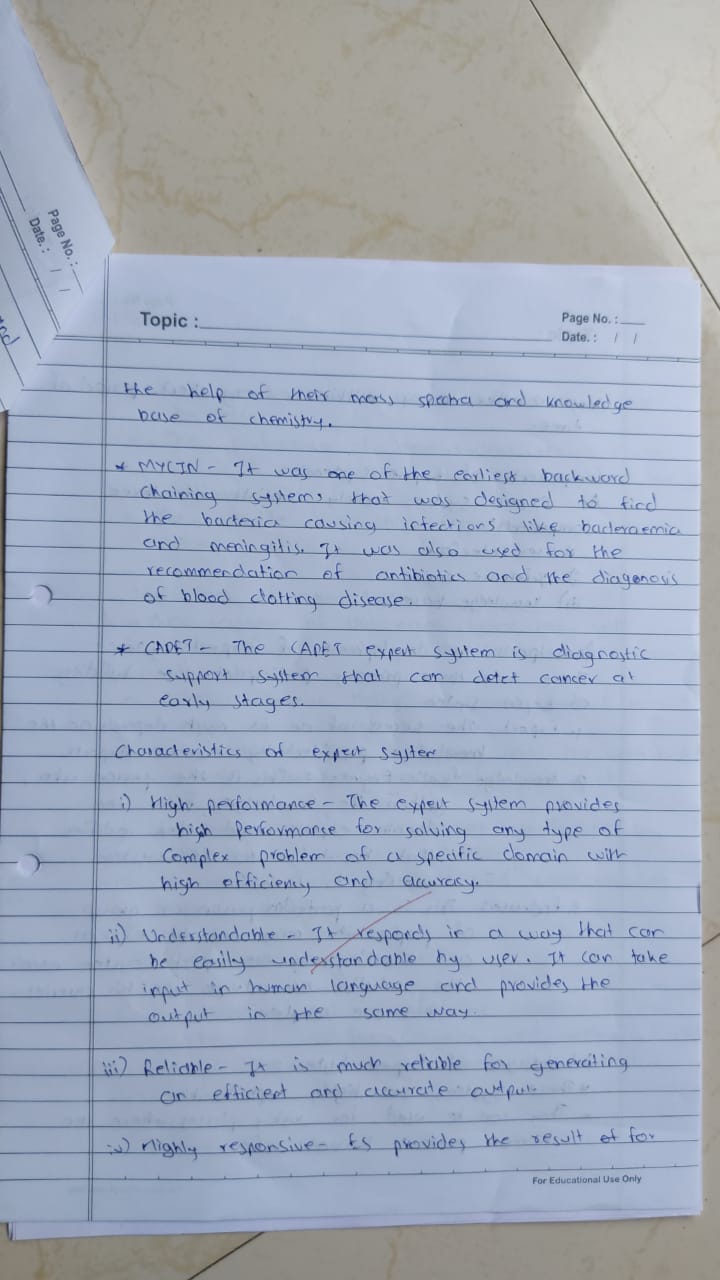 Page No. :
Date. : / /
Topic :
Page No. :
Date. : / /
the help of their mass spectra and knowledge
base of chemistry.
* MYCIN - It was one of the earliest backward
chaining systems that was designed to find
the bacteria causing infections like bacteraemia
and meningitis. It was also used for the
recommendation of antibiotics and the diagenosis
of blood clotting disease.
* CADET - The CADET expert system is diagnostic
support system that can detct cancer at
early stages.
Characteristics of expert system
i) High performance - The expert system provides
high performance for solving any type of
Complex problem of a specific domain with
high efficiency and accuracy.
ii) Understandable - It responds in a way that can
be easily understandable by user. It can take
input in human language and provides the
output in the same way.
iii) Reliable - It is much reliable for generating
an efficient and accurate output.
iv) Highly responsive - ES provides the result of for
For Educational Use Only